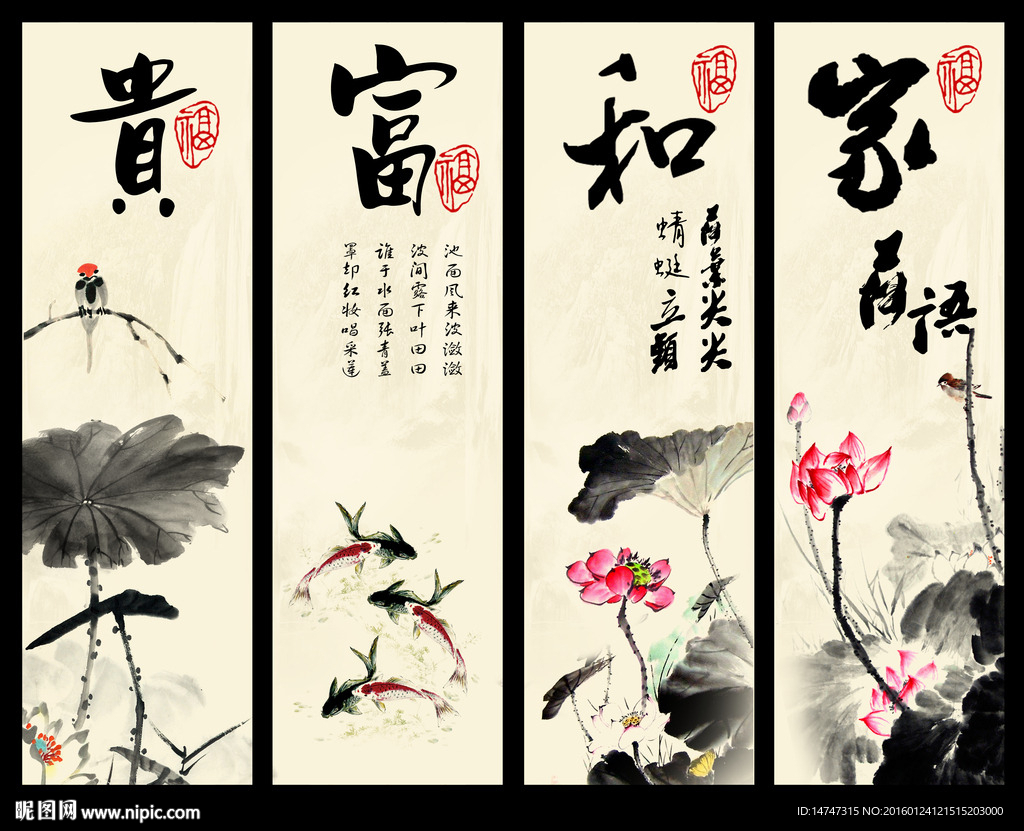 家
福
荷語
和
福
荷葉尖尖
蜻蜓立頭
富
福
池面风来波潋潋
波间露下叶田田
谁于水面张青盖
罩却红妆唱采莲
貴
福
昵图网 www.nipic.com
ID:14747315 NO:20160124121515203000